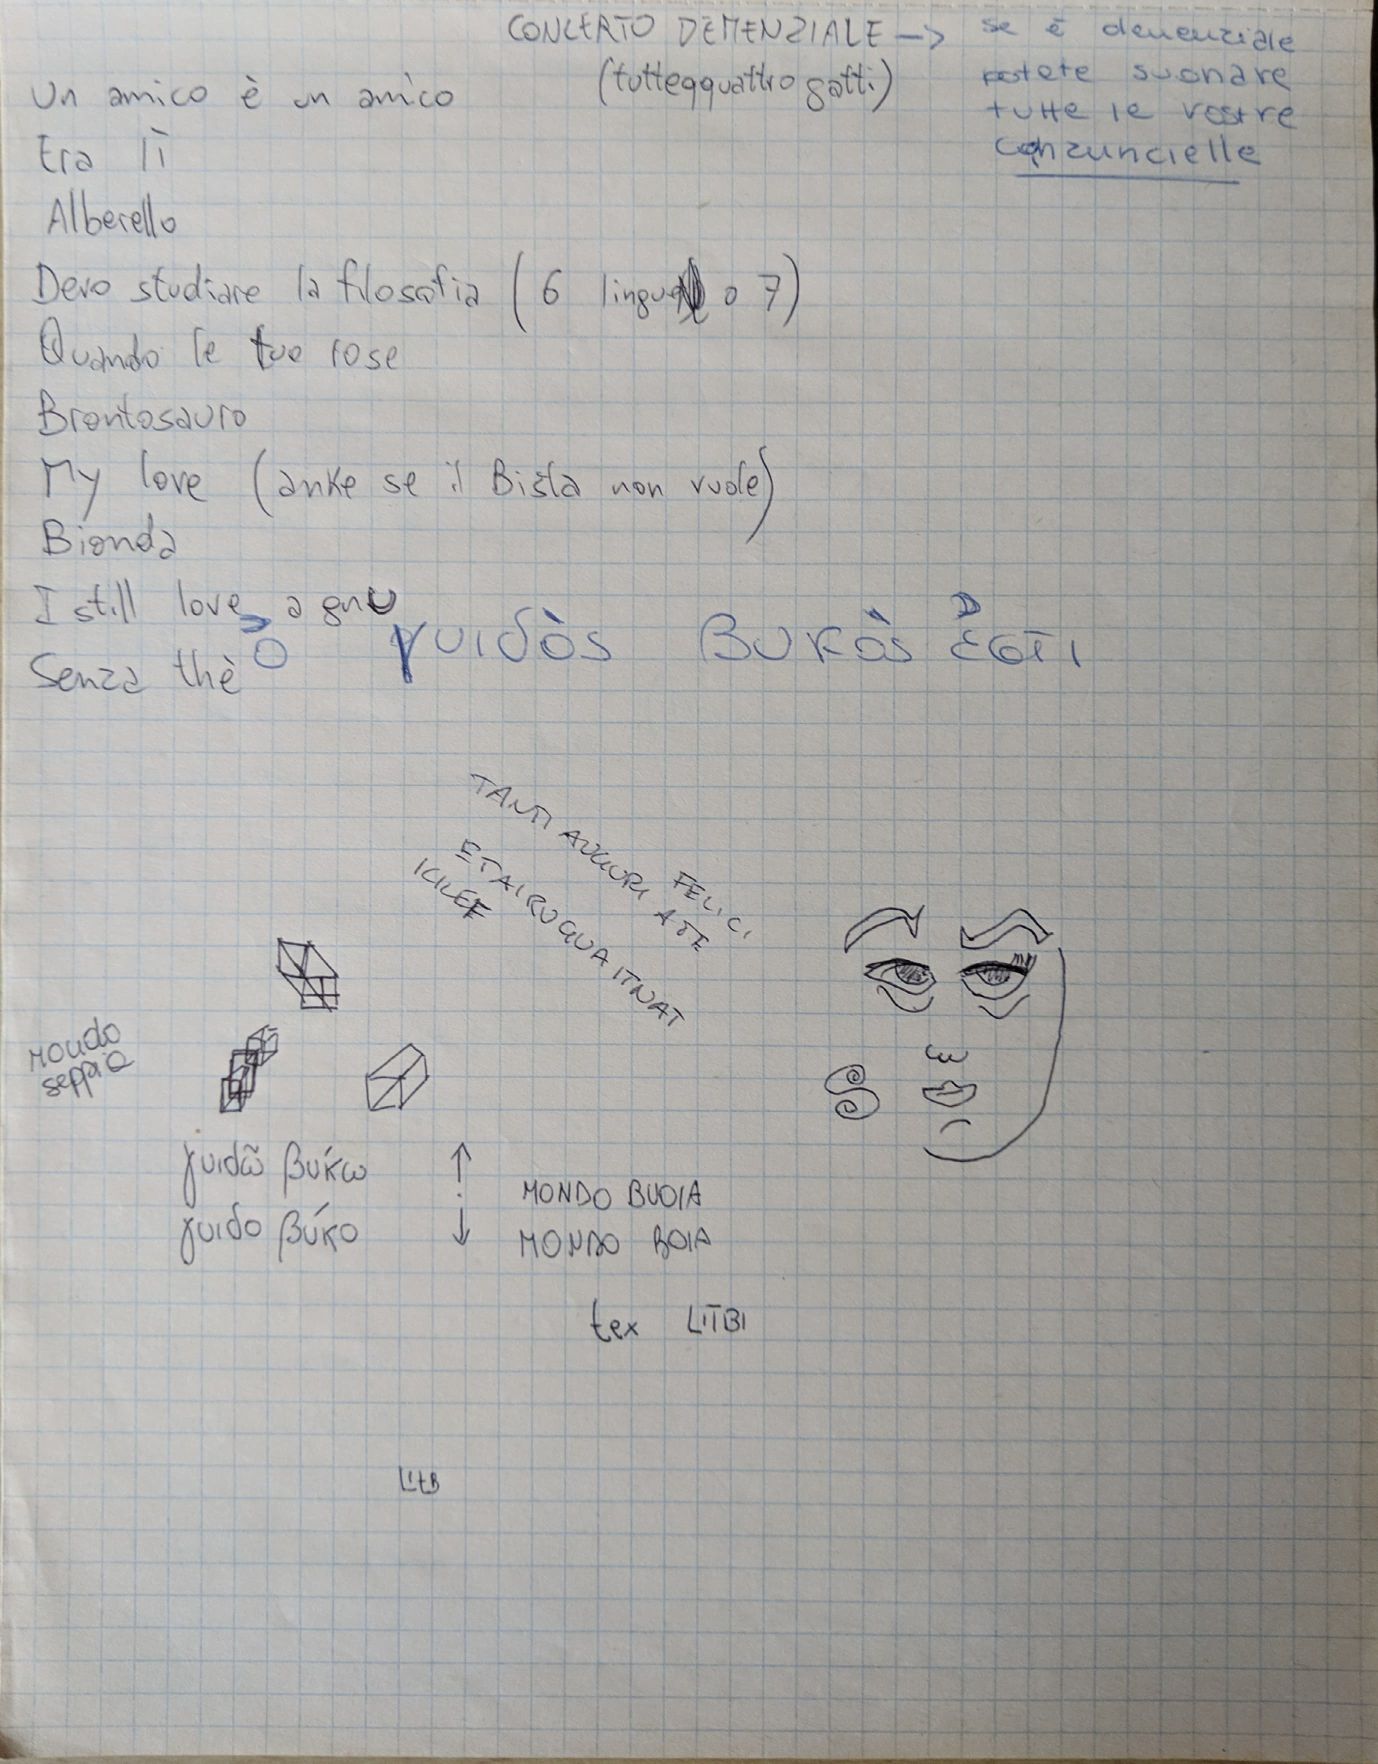 CONCERTO DEMENZIALE → se è demenziale
(tutteqquattro gatti) potete suonare
tutte le vostre
canzuncielle
Un amico è un amico
Era lì
Alberello
Devo studiare la filosofia (6 lingue o 7)
Quando le tue rose
Brontosauro
My love (anke se il Bisla non vuole)
Bionda
I still love a gnu
Senza thè
ὁ γυιδὸς βυκὸς ἐστι
TANTI AUGURI ATE
FELICI
ETAIRUGUAITNAT
mondo
seppia
γυιδῶ βύκω ↑ MONDO BUOIA
γυιδο βύκο ↓ MONDO BOIA
tex LITBI
LitB